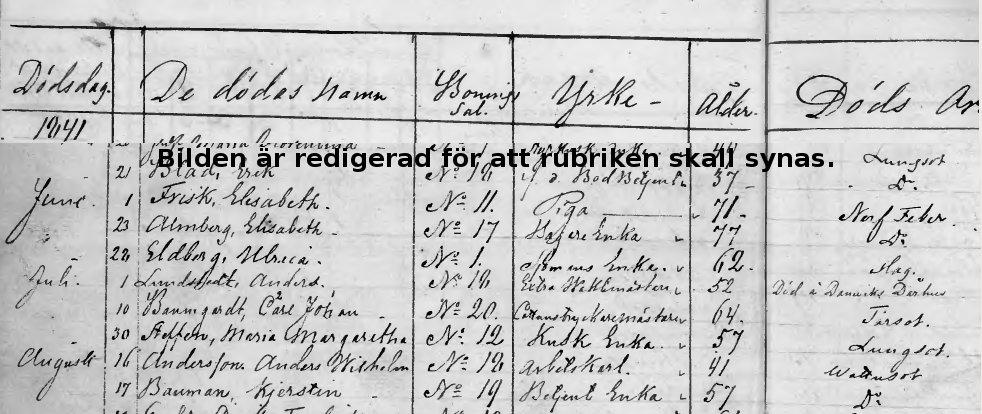 Dödsdag. De dödas namn Bonings Sal. Yrke - Ålder. Döds Or
1841
Bilden är redigerad för att rubriken skall synas.
21 Blad, Erik No 18 37 - Do
June. 1 Frisk, Elisabeth. No 11. Piga 71. Nerf Feber
23 Almberg, Elisabeth - No 17 Enka 77 Do
28 Eldberg, Ulrica. No 1. Enka. 62. Slag.
Juli. 1 Lundstedt, Anders. No 18 Extra Waktmästare 52 Död å Danviks Dårhus
10 Baumgardt, Carl Johan No 20. Cattunstryckaremästare 64. Tärsot.
30 Maria Margaretha No 12 Kusk Enka. 57 Lungsot.
Augusti 16 Andersson. Anders Wilhelm No 18 Arbetskarl. 41 Wattusot
17 Bauman, Kjerstin No 19 Betjent Enka 57 Do